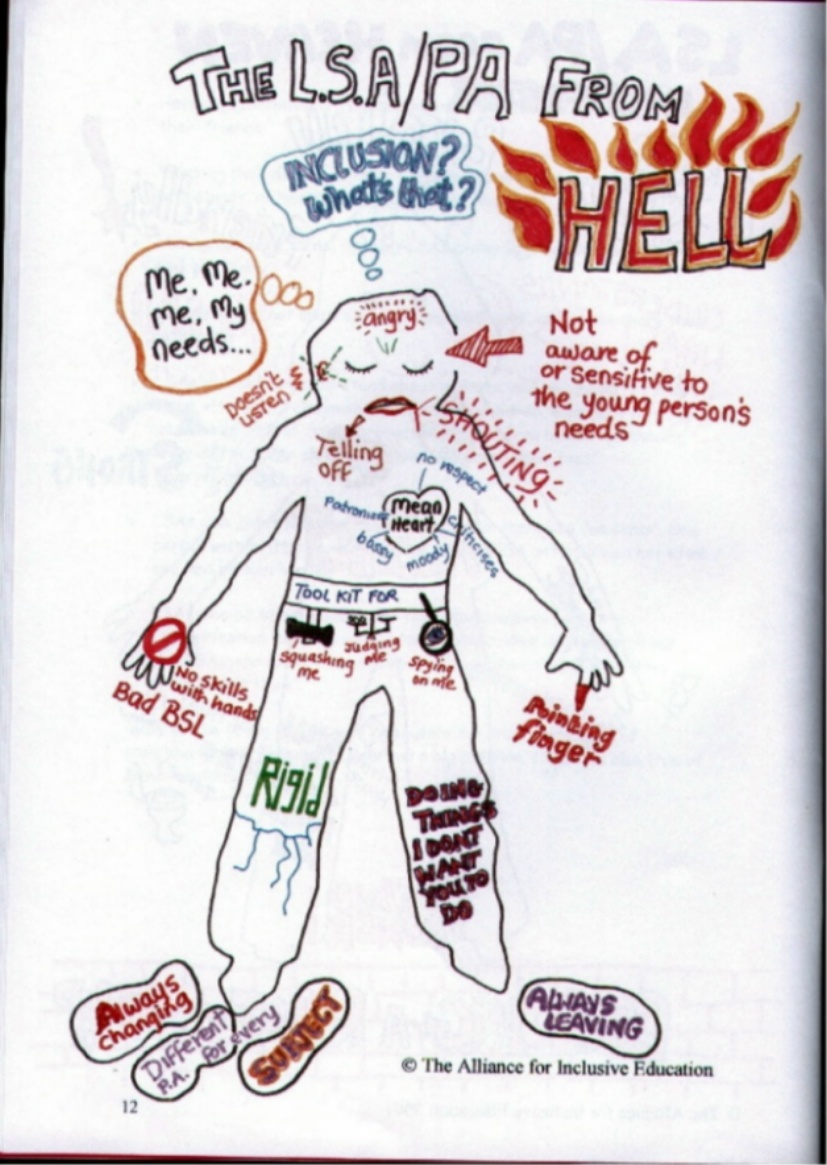 THE L.S.A/PA FROM
HELL
INCLUSION?
What's that?
Me, Me.
Me, My
needs...
angry
Not
aware of
or sensitive to
the young person's
needs
Doesn't
listen
SHOUTING
Telling
OFF
no respect
Mean
Heart
Patronise
bossy
moody
criticises
TOOL KIT FOR
squashing
me
Judging
me
Spying
on me
No skills
with hands
Bad BSL
Pointing
finger
Rigid
DOING
THINGS
I DONT
WANT
YOU TO
DO
Always
changing
Different
P.A. for every
SUBJECT
ALWAYS
LEAVING
© The Alliance for Inclusive Education
12